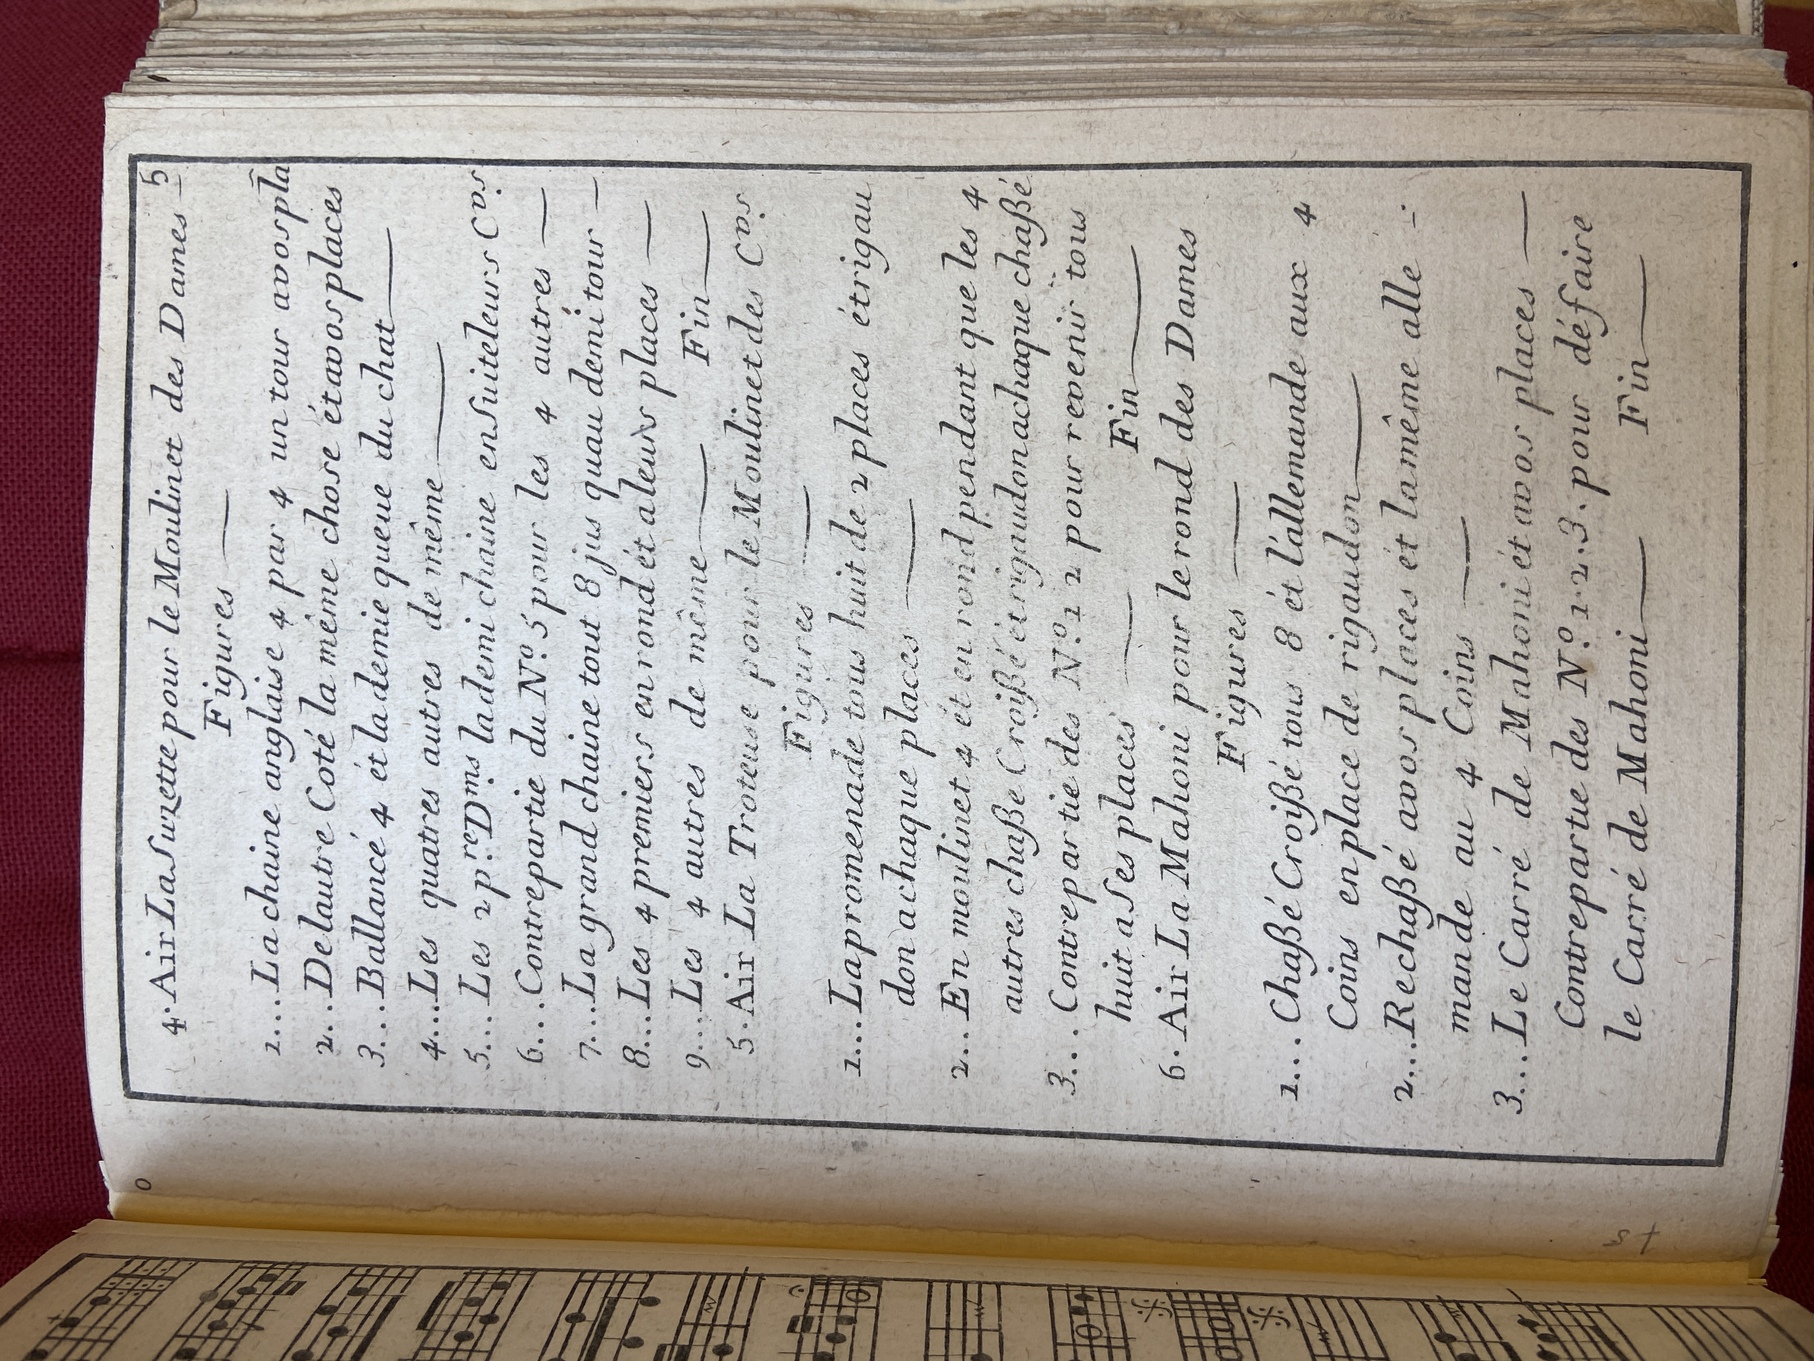 4. Air La Suzette pour le Moulinet des Dames 5
Figures
1... La chaine anglaise 4 par 4 un tour avos pla
2.. De lautre Coté la même chose ét avos places
3... Ballancé 4 ét la demie queue du chat
4.... Les quatres autres de même
5... Les 2 pre. Dms. la demi chaine en suite leurs Cvrs.
6... Contrepartie du No. 5 pour les 4 autres
7... La grand chaine tout 8 jus quau demi tour
8... Les 4 premiers en rond ét a leurs places
9... Les 4 autres de même Fin
5. Air La Troteuse pour le Moulinet des Cvrs.
Figures
1... La promenade tous huit de 2 places ét rigau
don a chaque places
2... En moulinet 4 ét en rond pendant que les 4
autres chaßé Croißé ét rigaudon achaque chaßé
3... Contrepartie des No. 1 2 pour revenir tous
huit a ses places Fin
6. Air La Mahoni pour le rond des Dames
Figures
1... Chaßé Croißé tous 8 ét l'allemande aux 4
Coins en place de rigaudon
2... Rechaßé avos places ét la même alle
mande au 4 Coins
3... Le Carré de Mahoni ét avos places
Contrepartie des No. 1.2.3. pour défaire
le Carré de Mahoni Fin